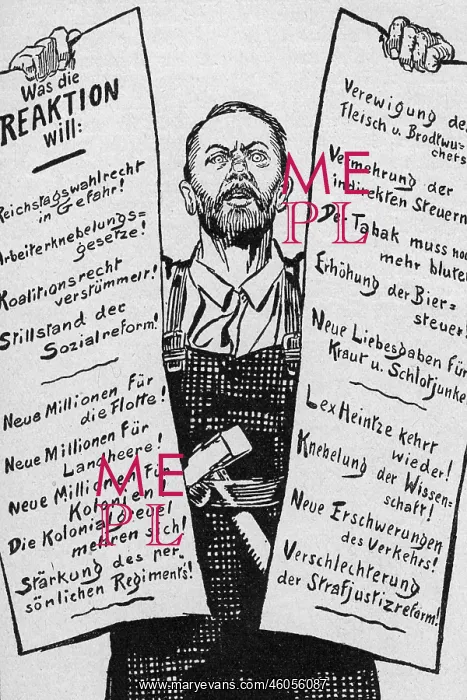 Was die
REAKTION
will:
Reichstagswahlrecht
in Gefahr!
Arbeiterknebelungs=
gesetze!
Koalitionsrecht
verstümmelt!
Stillstand der
Sozialreform!
Neue Millionen für
die Flotte!
Neue Millionen für
Landheere!
Neue Millionen für
Kolonien!
Die Kolonialgreuel
mehren sich!
Stärkung des per=
sönlichen Regiments!
Verewigung der
Fleisch u. Brodtwu=
chers
Vermehrung der
indirekten Steuern
Der Tabak muss noch
mehr bluten
Erhöhung der Bier=
steuer!
Neue Liebesgaben für
Kraut u. Schlotjunker
Lex Heintze kehrt
wieder!
Knebelung der Wissen=
schaft!
Neue Erschwerungen
des Verkehrs!
Verschlechterung
der Strafjustizreform!
ME
PL
ME
PL
www.maryevans.com/46056087